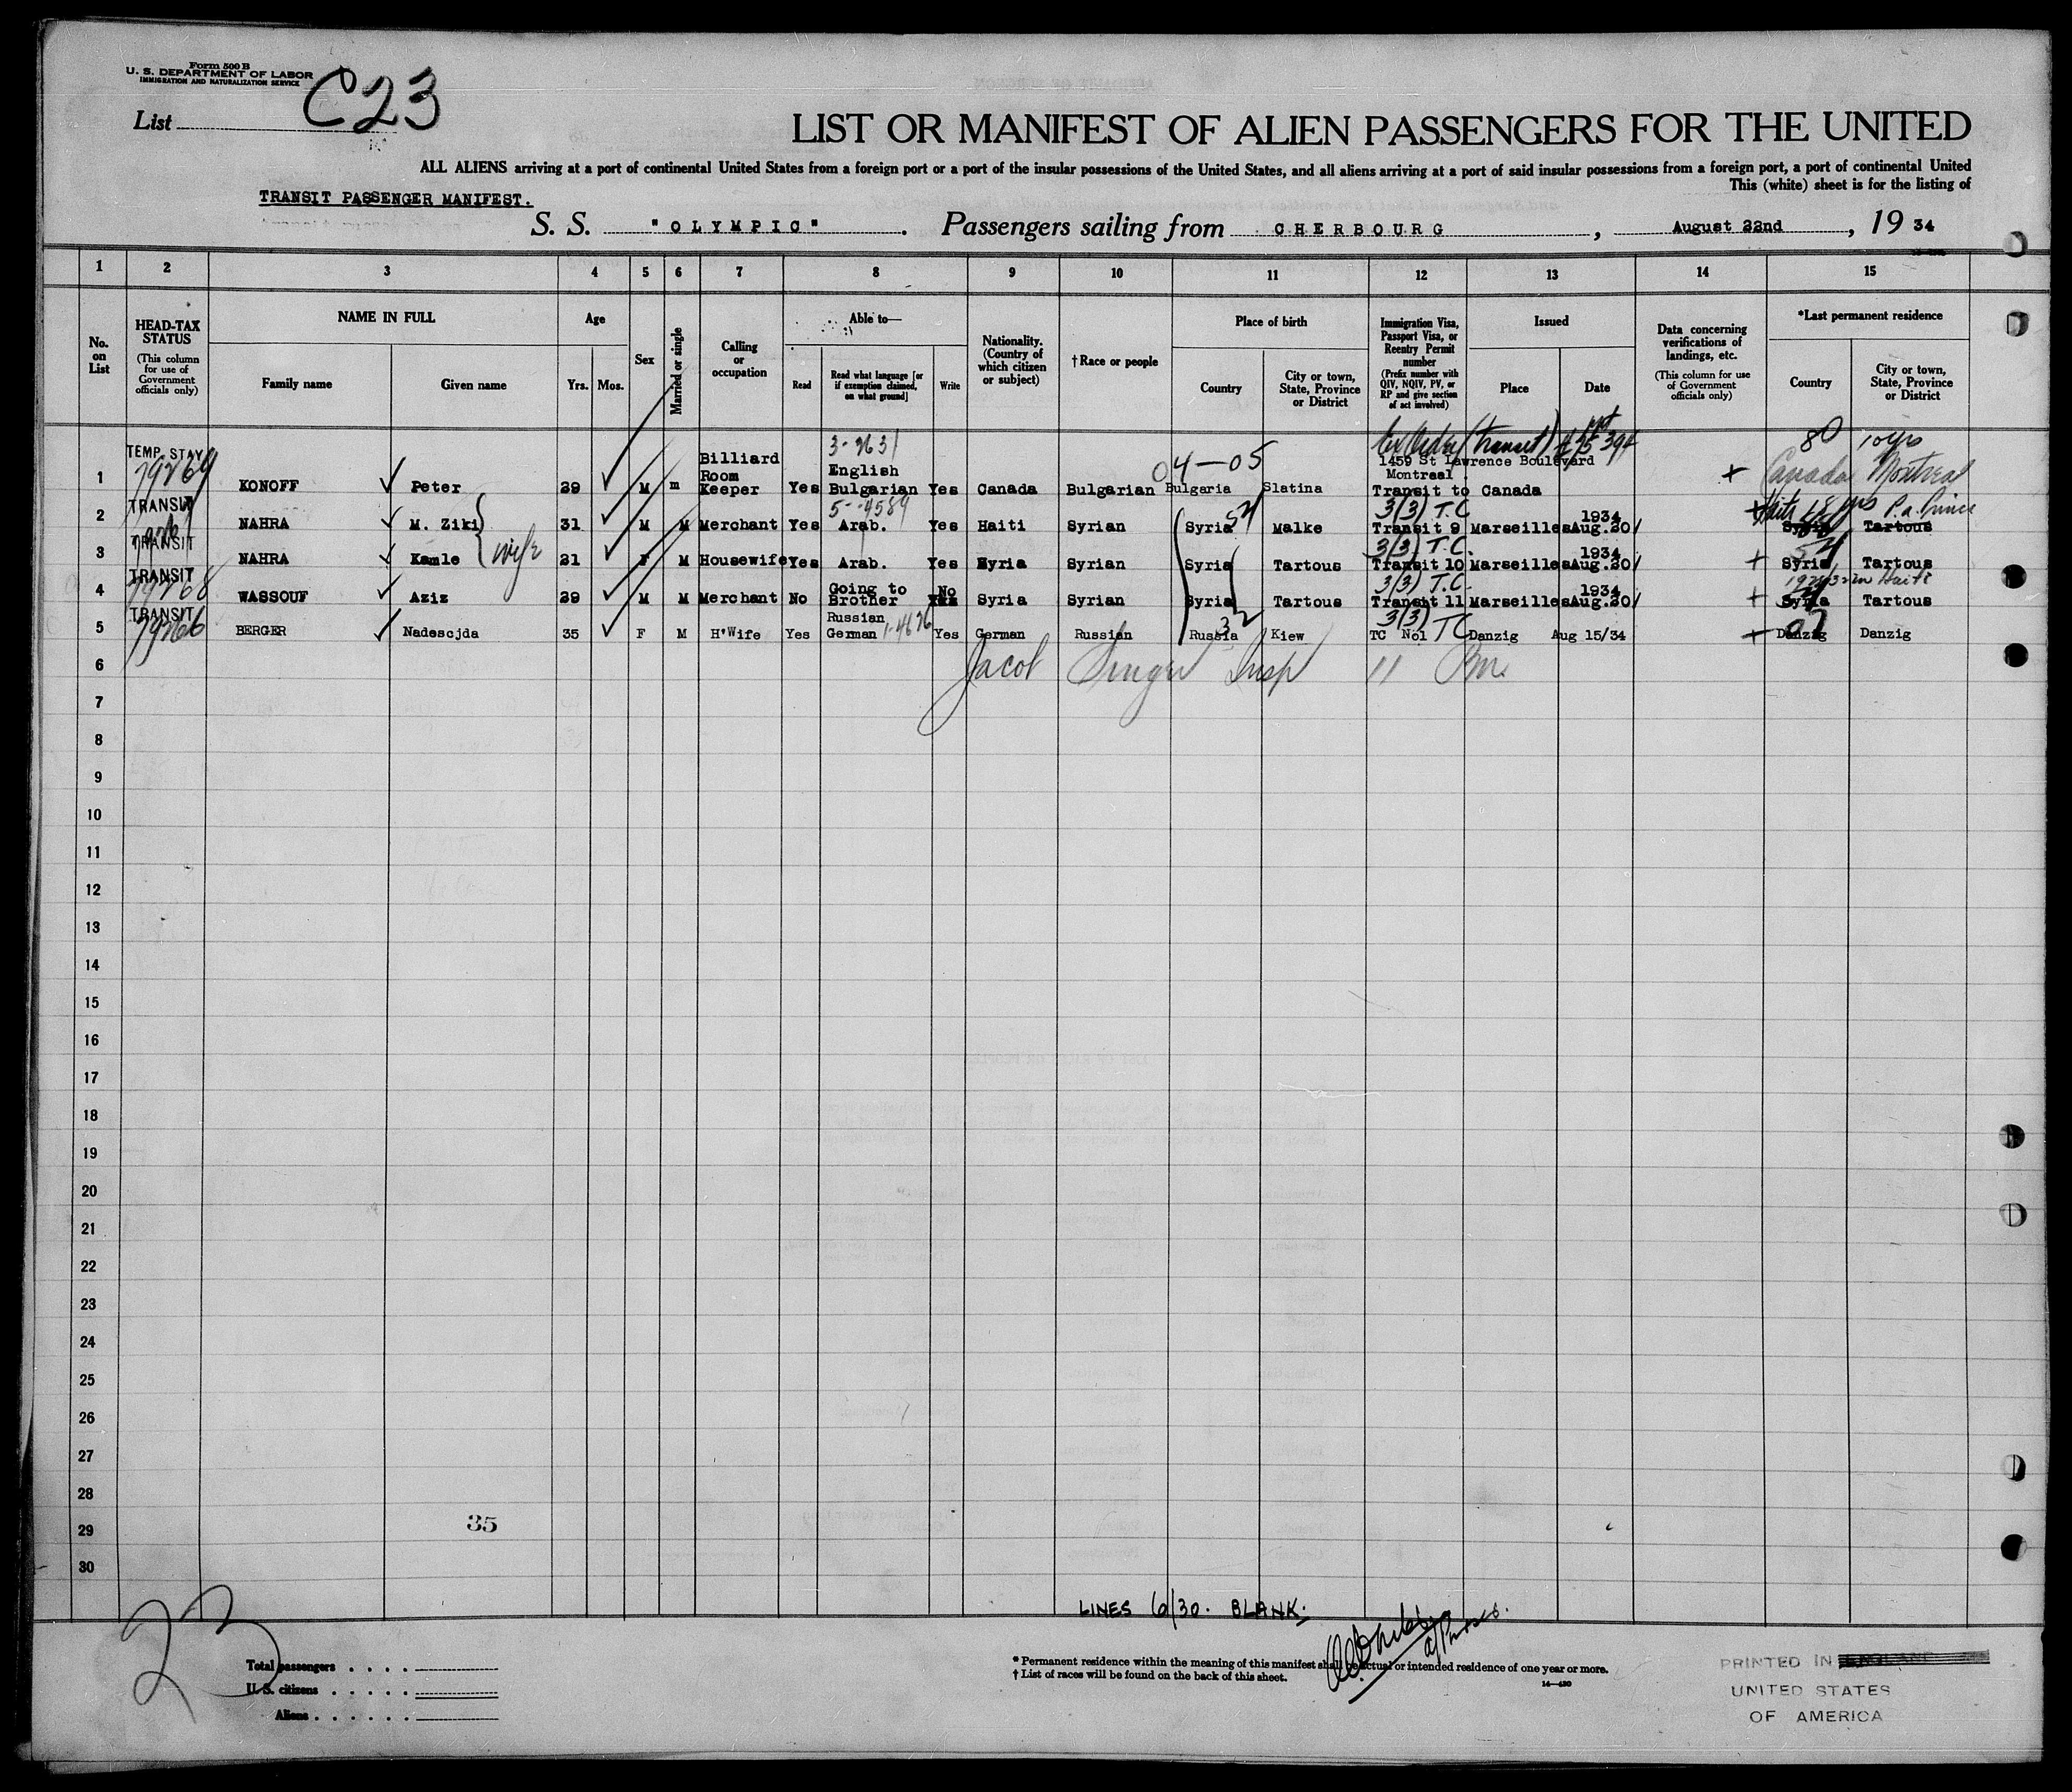 Form 500 B
U. S. DEPARTMENT OF LABOR
IMMIGRATION AND NATURALIZATION SERVICE
List C23
LIST OR MANIFEST OF ALIEN PASSENGERS FOR THE UNITED
ALL ALIENS arriving at a port of continental United States from a foreign port or a port of the insular possessions of the United States, and all aliens arriving at a port of said insular possessions from a foreign port, a port of continental United
This (white) sheet is for the listing of
TRANSIT PASSENGER MANIFEST.
S. S. "OLYMPIC". Passengers sailing from CHERBOURG, August 22nd, 19 34
1 2 3 4 5 6 7 8 9 10 11 12 13 14 15
No. on List
HEAD-TAX STATUS (This column for use of Government officials only)
NAME IN FULL
Family name Given name
Age
Yrs. Mos.
Sex
Married or single
Calling or occupation
Able to—
Read
Read what language [or if exemption claimed, on what ground]
Write
Nationality. (Country of which citizen or subject)
† Race or people
Place of birth
Country
City or town, State, Province or District
Immigration Visa, Passport Visa, or Reentry Permit number (Prefix number with QIV, NQIV, PV, or RP and give section of act involved)
Issued
Place Date
Data concerning verifications of landings, etc. (This column for use of Government officials only)
*Last permanent residence
Country
City or town, State, Province or District
TEMP. STAY 3-2631 04-05 (transit) 80 10 yrs
1 79269 KONOFF Peter 39 M m Billiard Room Keeper Yes English Bulgarian Yes Canada Bulgarian Bulgaria Slatina 1459 St Lawrence Boulevard Montreal. Transit to Canada + Canada Montreal
TRANSIT 5-4589 3(3) T.C. Haiti yrs P.a. Prince
2 NAHRA M. Ziki 31 M M Merchant Yes Arab. Yes Haiti Syrian Syria Malke Transit 9 Marseilles 1934 Aug. 20 Syria Tartous
TRANSIT wife 3(3) T.C.
3 NAHRA Kamle 21 F M Housewife Yes Arab. Yes Syria Syrian Syria Tartous Transit 10 Marseilles 1934 Aug. 20 + Syria Tartous
TRANSIT 3(3) T.C. in Haiti
4 79268 WASSOUF Aziz 29 M M Merchant No Going to Brother No Syria Syrian Syria Tartous Transit 11 Marseilles 1934 Aug. 20 + Syria Tartous
TRANSIT 3(3) TC
5 79266 BERGER Nadescjda 35 F M H'Wife Yes Russian German 1-4676 Yes German Russian Russia Kiew TC No1 Danzig Aug 15/34 Danzig Danzig
6 Jacob Singer Insp 11
7
8
9
10
11
12
13
14
15
16
17
18
19
20
21
22
23
24
25
26
27
28
29
30
35
LINES 6/30. BLANK.
23
Total passengers
U. S. citizens
Aliens
* Permanent residence within the meaning of this manifest shall be actual or intended residence of one year or more.
† List of races will be found on the back of this sheet.
14—430
PRINTED IN ENGLAND
UNITED STATES
OF AMERICA